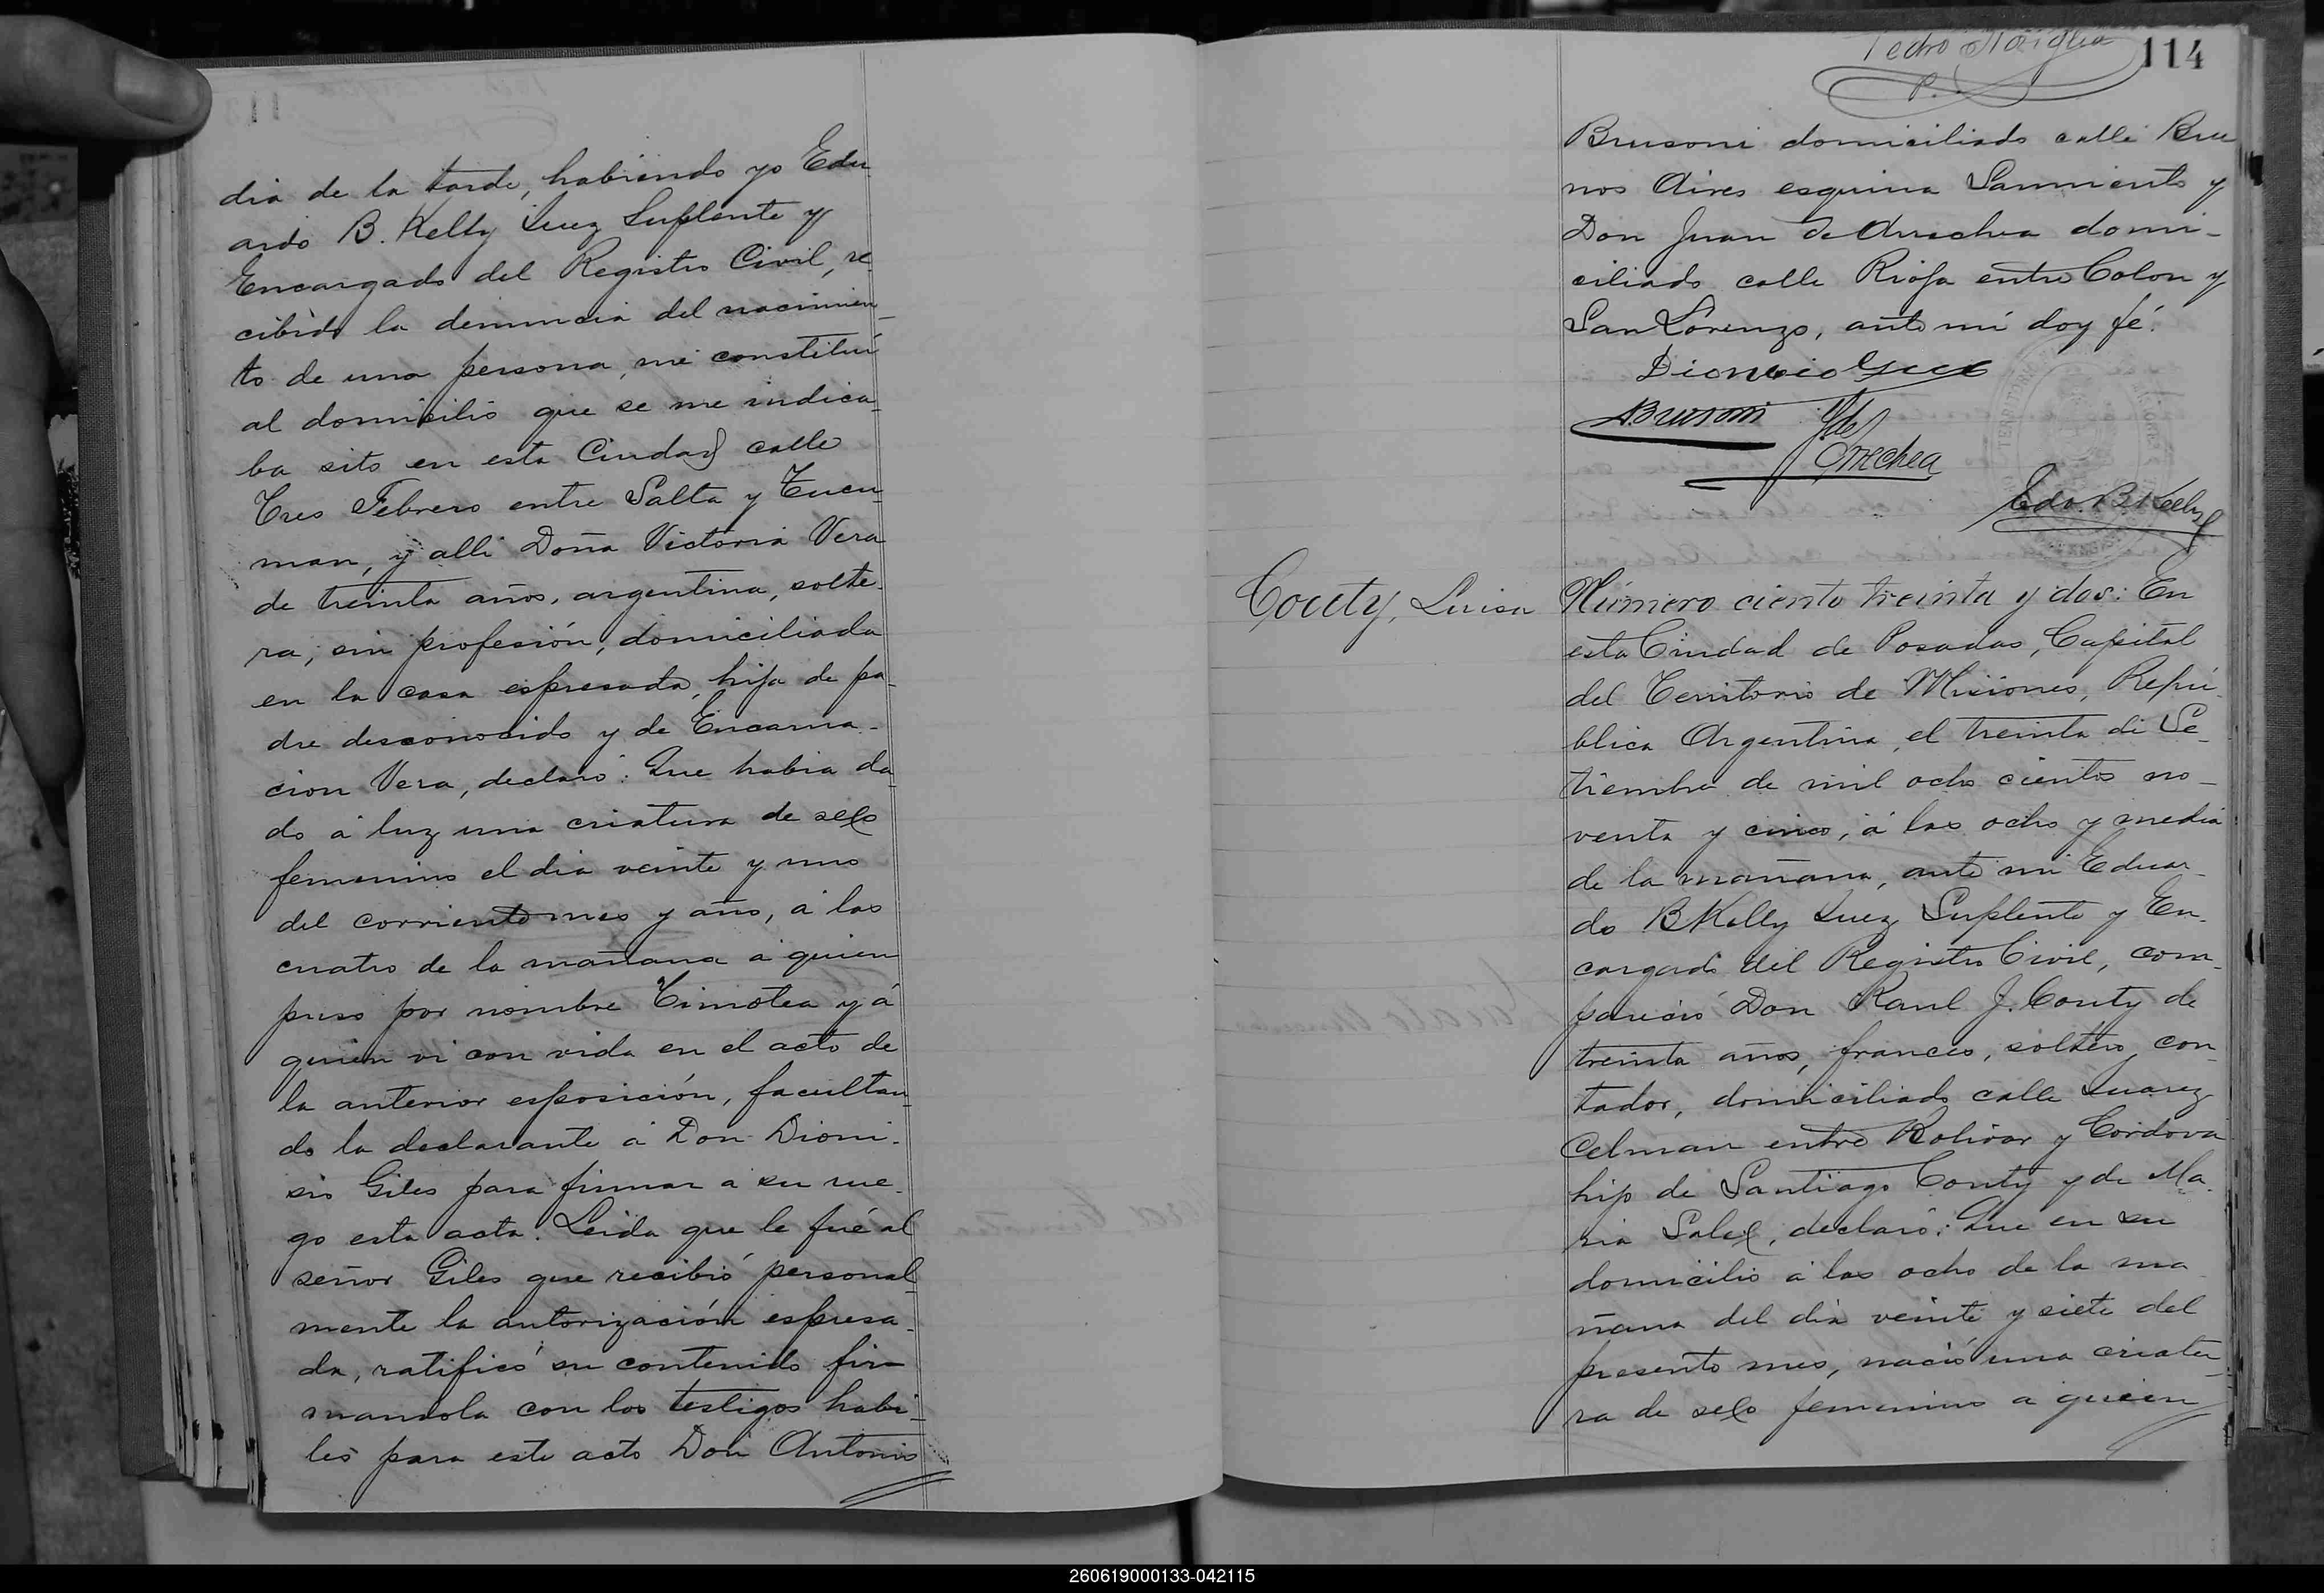 dia de la tarde, habiendo yo Edu
ardo B. Kelly Juez Suplente y
Encargado del Registro Civil, re
cibido la denuncia del nacimien
to de una persona, me constituí
al domicilio que se me indica
ba sito en esta Ciudad calle
Tres Febrero entre Salta y Tucu
man, y alli Doña Victoria Vera
de treinta años, argentina, solte
ra, sin profesión, domiciliada
en la casa espresada, hija de pa
dre desconocido y de Encarna-
cion Vera, declaró: Que habia da
do á luz una criatura de sexo
femenino el dia veinte y uno
del corriente mes y año, á las
cuatro de la mañana á quien
puso por nombre Timotea y á
quien vi con vida en el acto de
la anterior esposición, facultan
do la declarante á Don Dioni-
sio Giles para firmar á su rue-
go esta acta. Leida que le fué al
señor Giles que recibió personal
mente la autorización espresa-
da, ratificó su contenido fir
mandola con los testigos habi
les para este acto Don Antonio
114
Pedro
P.
Brusoni domiciliado calle Bue
nos Aires esquina Sarmiento y
Don Juan de Arrechea domi-
ciliado calle Rioja entre Colon y
San Lorenzo, ante mí doy fé.
Dionicio
ABrusoni J de
Arrechea
Edo. B Kelly
Couty, Luisa
Número ciento treinta y dos: En
esta Ciudad de Posadas, Capital
del Territorio de Misiones, Repú
blica Argentina, el treinta de Se-
tiembre de mil ocho cientos no-
venta y cinco, á las ocho y media
de la mañana, ante mi Eduar-
do B Kelly Juez Suplente y En-
cargado del Registro Civil, com-
pareció Don Raul J. Couty de
treinta años, frances, soltero, con
tador, domiciliado calle Juarez
Celman entre Bolivar y Cordova
hijo de Santiago Couty y de Ma-
ria Salex, declaró: Que en su
domicilio á las ocho de la ma
ñana del dia veinte y siete del
presente mes, nació una criatu
ra de sexo femenino a quien
260619000133-042115